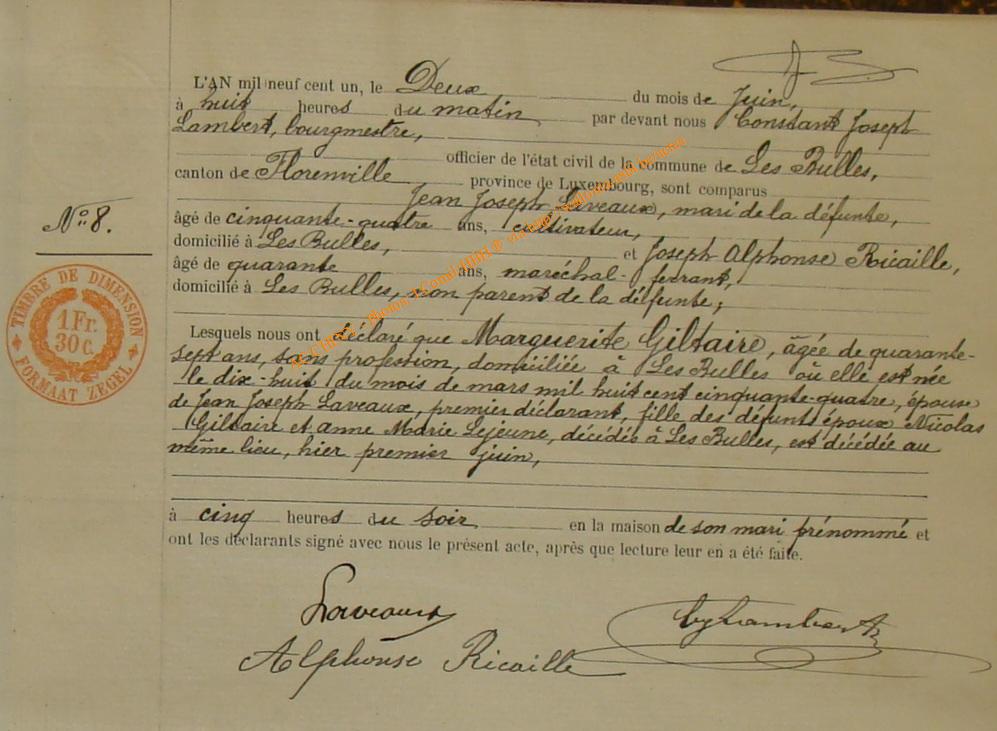 L'AN mil neuf cent un, le Deux du mois de Juin,
à huit heures du matin par devant nous Constant Joseph
Lambert, bourgmestre,
officier de l'état civil de la commune de Les Bulles,
canton de Florenville province de Luxembourg, sont comparus
Jean Joseph Laveaux, mari de la défunte,
âgé de cinquante-quatre ans, cultivateur,
domicilié à Les Bulles, et Joseph Alphonse Ricaille,
âgé de quarante ans, maréchal-ferrant,
domicilié à Les Bulles, non parent de la défunte;
N° 8.
TIMBRE DE DIMENSION
1 Fr.
30 c.
FORMAAT ZEGEL
Lesquels nous ont déclaré que Marguerite Giltaire, âgée de quarante-
sept ans, sans profession, domiciliée à Les Bulles où elle est née
le dix-huit du mois de mars mil huit cent cinquante-quatre, épouse
de Jean Joseph Laveaux, premier déclarant, fille des défunts époux Nicolas
Giltaire et anne Marie Lejeune, décédés à Les Bulles, est décédée au
même lieu, hier premier juin,
à cinq heures du soir en la maison de son mari prénommé et
ont les déclarants signé avec nous le présent acte, après que lecture leur en a été faite.
Laveaux
Alphonse Ricaille